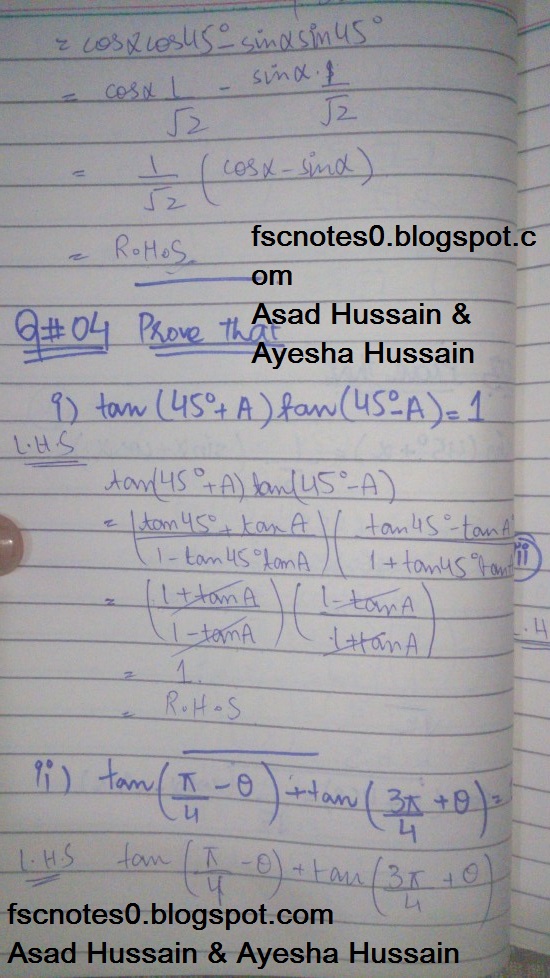 = cosαcos45° - sinαsin45°
= cosα 1/√2 - sinα·1/√2
= 1/√2 (cosα - sinα)
= R.H.S.
fscnotes0.blogspot.c
om
Asad Hussain &
Ayesha Hussain
Q#04 Prove that
i) tan(45°+A) tan(45°-A) = 1
L.H.S
tan(45°+A) tan(45°-A)
= ((tan45° + tanA)/(1 - tan45°tanA)) ((tan45° - tanA)/(1 + tan45°tan
= ((1+tanA)/(1-tanA)) ((1-tanA)/(1+tanA))
= 1.
= R.H.S
ii) tan(π/4 - θ) + tan(3π/4 + θ) =
L.H.S tan(π/4 - θ) + tan(3π/4 + θ)
fscnotes0.blogspot.com
Asad Hussain & Ayesha Hussain
ii
L.H